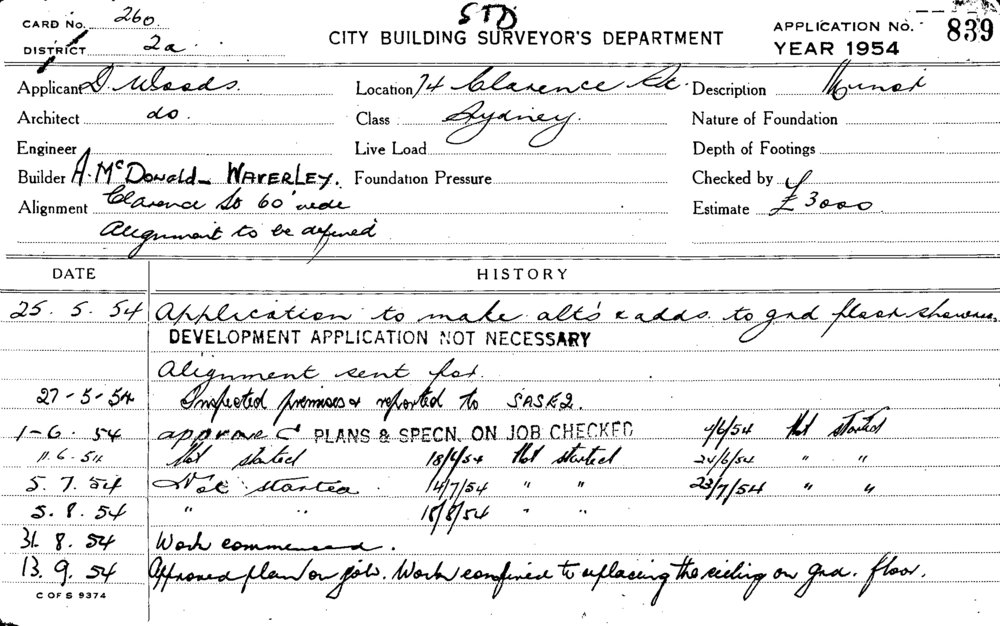 CARD No. 260
STD
CITY BUILDING SURVEYOR'S DEPARTMENT
APPLICATION No. 839
DISTRICT 2a
YEAR 1954
Applicant D. Woods.
Location 74 Clarence St.
Description Minor
Architect do
Class Sydney.
Nature of Foundation
Engineer
Live Load
Depth of Footings
Builder A. McDonald - WAVERLEY.
Foundation Pressure
Checked by
Alignment Clarence St 60' wide
Estimate £3000
Alignment to be defined
DATE HISTORY
25. 5. 54 Application to make alt's & adds. to gnd floor
DEVELOPMENT APPLICATION NOT NECESSARY
Alignment sent for.
27-5-54 Inspected premises & reported to
1-6. 54 approve PLANS & SPECN. ON JOB CHECKED 4/6/54 Not started
11.6.54 Not started 18/6/54 Not started 24/6/54 " "
5. 7. 54 Not started 14/7/54 " " 23/7/54 " "
5. 8. 54 " " 18/8/54 " "
31. 8. 54 Work commenced.
13. 9. 54 Approved plan on job. Work confined to replacing the ceiling on gnd. floor.
C OF S 9374